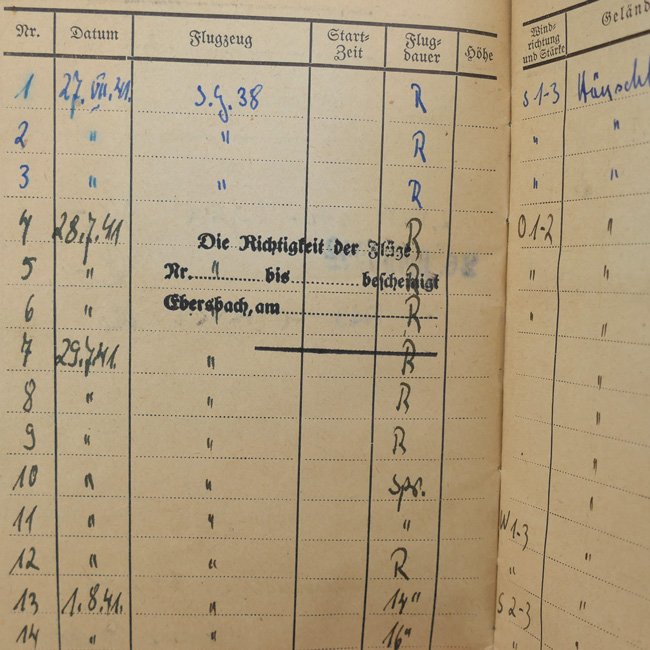 Nr. Datum Flugzeug Start-Zeit Flug-dauer Höhe Wind-richtung und Stärke Geländ
1 27.VII.41. S.G.38 R S 1-3
2 " " R " "
3 " " R " "
4 28.7.41 R O 1-2 "
Die Richtigkeit der Flüge
5 " " R " "
Nr. bis bescheinigt
6 " " R " "
Ebersbach, am
7 29.7.41. " R "
8 " " R "
9 " " R "
10 " " Spr. "
11 " " " W 1-3
12 " " R " "
13 1.8.41. " 14" S 2-3 "
14 " " 16" " "